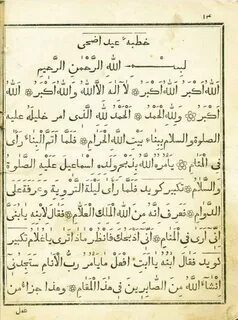 ١٣
خطبهٔ عيد اضحى
بســـم الله الرّحمن الرّحيم
اللهُ اكبر اللهُ اكبر اللهُ اكبر لا اله الّا اللهُ واللهُ اكبر اللهُ
اكبر وللهِ الحمد الحمد للهِ الّذى امر خليله عليه
الصلوة والسلام ببناء بيت الله الحرام فلمّا اتمّ البناء رأى
فى المقام يأمر الله بذبح ولده اسماعيل عليه الصلوة
والسلام تكبير كويد فلمّا رأى ليلة التروية وعرفة على
الدوام فعرف انّه من الله الملك العلّام فقال لابنه يا بنىّ
انّى ارى فى المنام انّى اذبحك فانظر ماذا ترى يا غلام تكبير
كويد فقال لابيه يا ابت افعل ما يأمر ربّ الانام ستجدنى
انشاء الله من الصابرين فى هذا المقام وهذا جزاء من